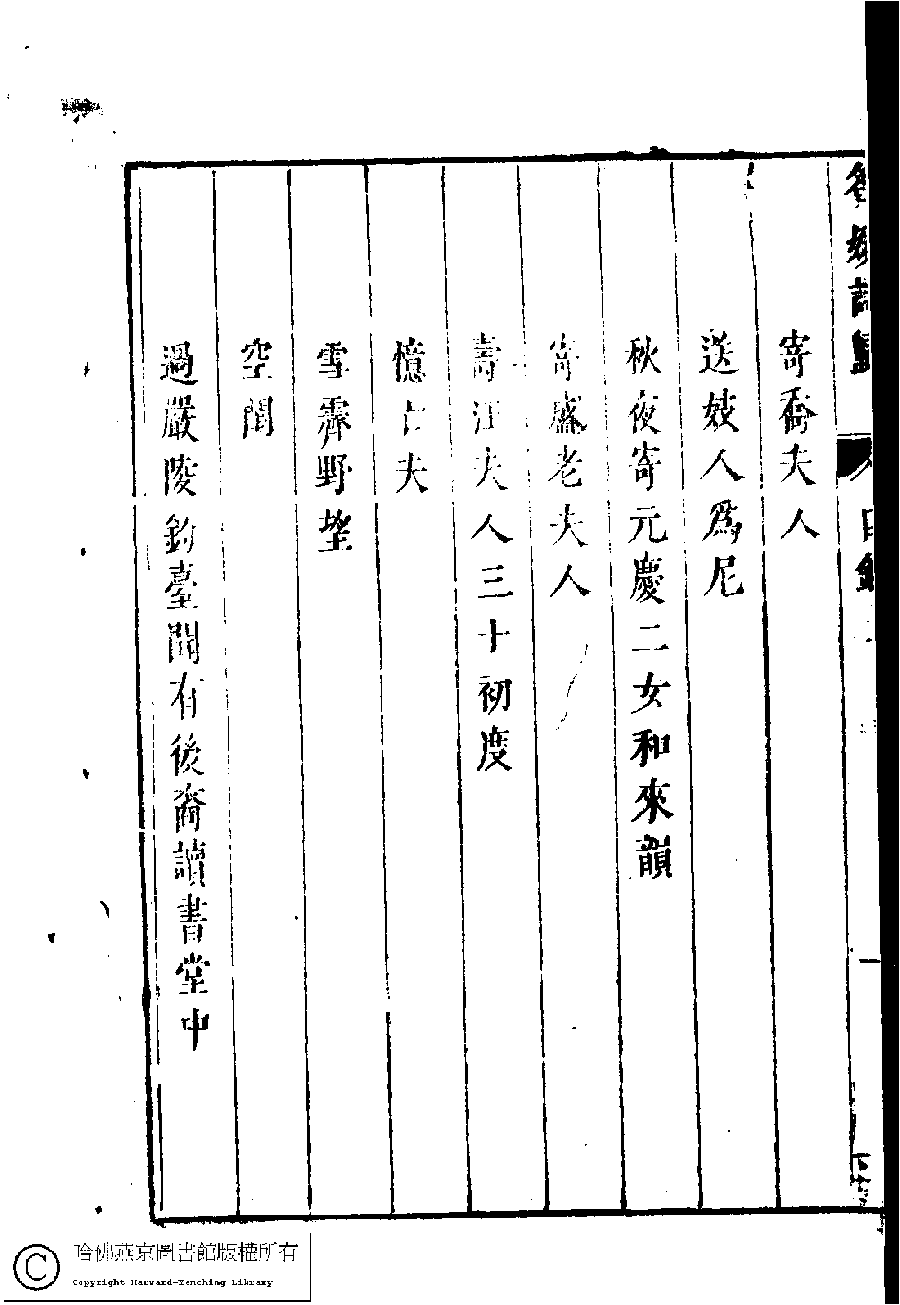 寄喬夫人
送妓人爲尼
秋夜寄元慶二女和來韻
寄盛老夫人
壽汪夫人三十初度
憶亡夫
雪霽野望
空閨
過嚴陵釣臺聞有後裔讀書堂中
哈佛燕京圖書館版權所有
Copyright Harvard-Yenching Library